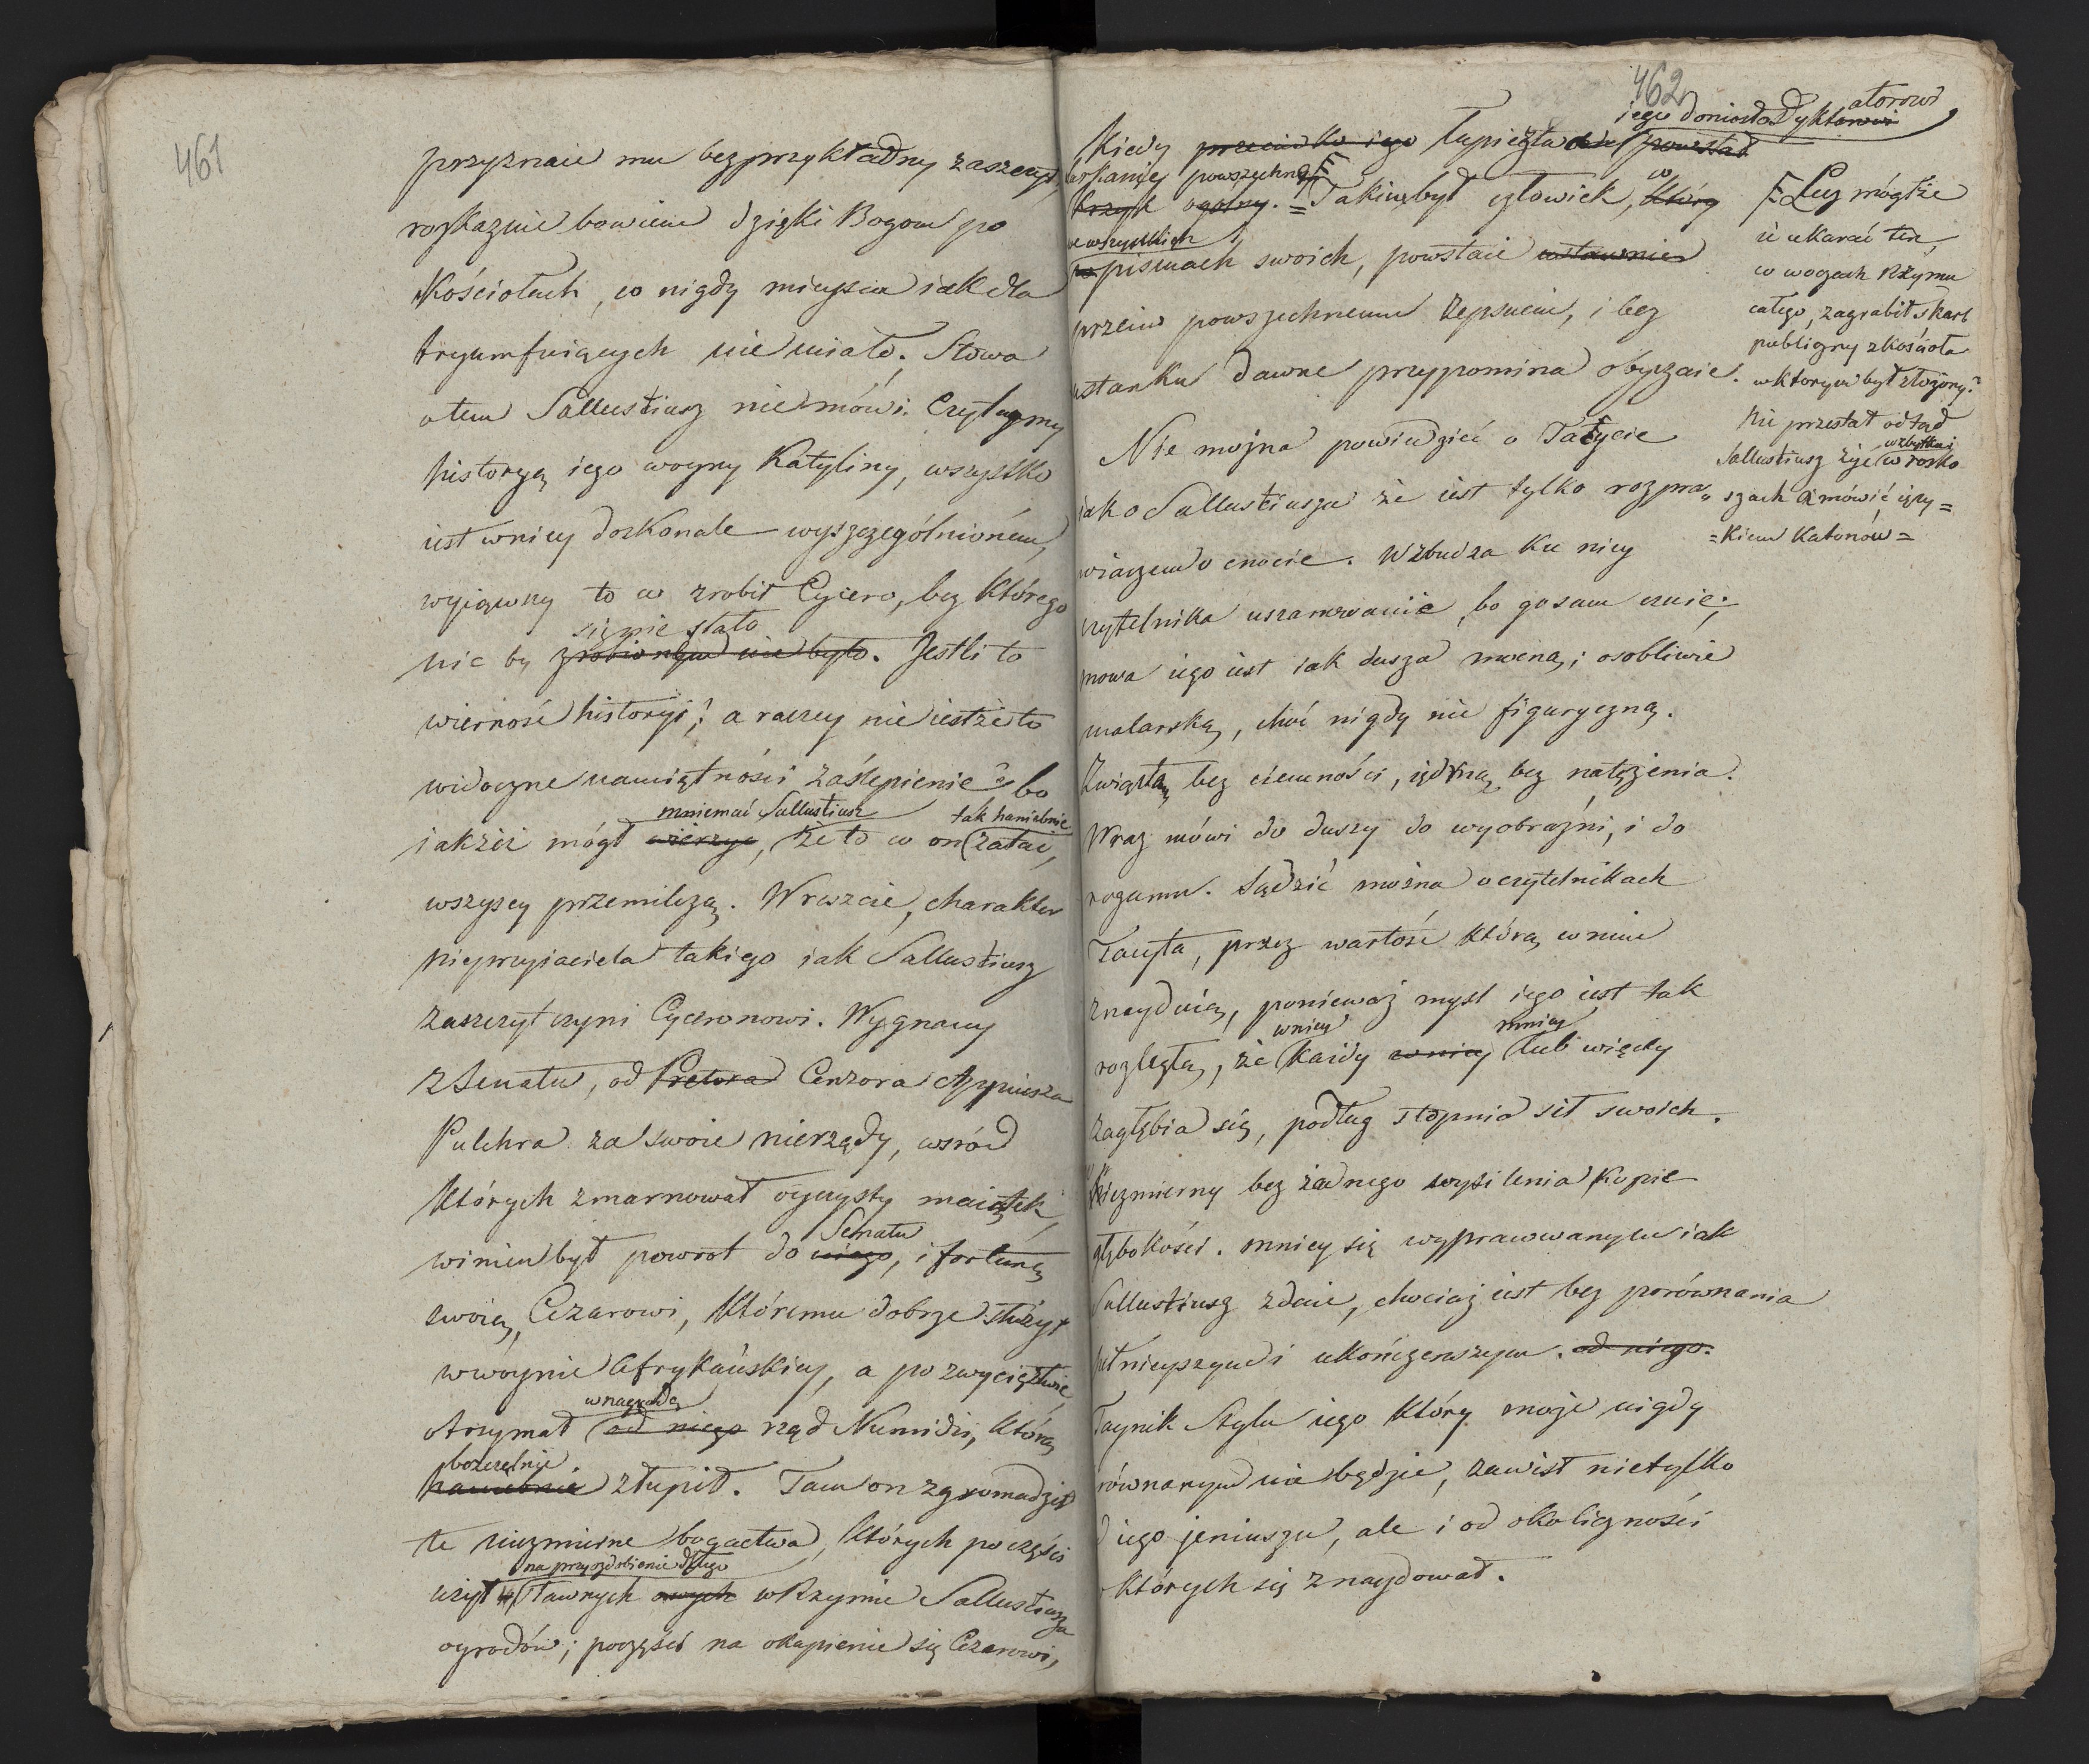 461
przyznaie mu bezprzykładny zaszczyt,
roskazuie bowiem dzięki Bogom po
Kościołach, co nigdy mieysca iak dla
tryumfuiących nie miało. Słowa
otem Sallustiusz nie mówi. Czytaymy
historyą iego woyny Katyliny, wszystko
iest wniey doskonale wyszczególnioném,
wyiąwszy to co zrobił Cycero, bez którego
się nie stało
nic by zrobionym nie było. Jestli to
wierność historyi? a raczey nie iestże to
widoczne namiętności zaślepienie? bo
mniemać Sallustiusz tak haniebnie
iakżeż mógł wierzyć, że to co on zataić,
wszyscy przemilczą. Wreszcie, charakter
nieprzyiaciela takiego iak Sallustiusz
zaszczyt czyni Cyceronowi. Wygnany
z Senatu, od Pretora Cenzora Appiusza
Pulchra za swoie nierządy, wśród
których zmarnował oyczysty maiątek,
Senatu
winien był powrót do niego, i fortunę
swoią, Cezarowi, któremu dobrze służył
w woynie Afrykańskiey, a po zwycięztwie
w nagrodę
otrzymał od niego rząd Numidii, którą
bezczelnie
haniebnie złupił. Tam on zgromadził
te niezmierne bogactwa, których po części
na przyozdobienie
użył sławnych owych w Rzymie Sallustiusza
ogrodów; poczęści na okupienie się Cezarowi,
462
iego doniosło Dyktatorowi
Kiedy przeciwko iego łupieztwom powstał
powszechną
krzyk ogólny. = Takim był człowiek, co który
we wszystkich
po pismach swoich, powstaie ustawnie
przeciw powszechnemu zepsuciu, i bez
ustanku dawne przypomina obyczaie.
Nie można powiedzieć o Tacycie
iako Sallustiuszu że iest tylko rozpra„
wiaczem o cnocie. Wzbudza ku niey
czytelnika uszanowanie, bo go sam czuie;
mowa iego iest iak dusza mocną; osobliwie
malarską, choć nigdy nie figuryczną.
Zwięzłą bez ciemności, iędrną bez natężenia.
Wraz mówi do duszy do wyobraźni, i do
rozumu. Sądzić można o czytelnikach
Tacyta, przez wartość którą w nim
znayduią, ponieważ myśl iego iest tak
wniey mniey
rozległą, że każdy wniey lub więcey
zagłębia się, podług stopnia sił swoich.
Niezmierny bez żadnego wysilenia kopie
głębokości. mniey się wypracowanym iak
Sallustiusz zdaie, chociaż iest bez porównania
pełnieyszym i ukończeńszym. od niego.
Taynik Stylu iego który może nigdy
równanym nie będzie, zawisł nietylko
d iego jeniuszu, ale i od okoliczności
których się znaydował.
Lecz mógłże
ie ukarać ten,
co w oczach Rzymu
całego, zagrabił skarb
publiczny z kościoła
w ktorym był złożony?
Nie przestał odtąd
w zbytku i
Sallustiusz żyć w rosko
szach a mówić ięzy=
=kiem Katonów=